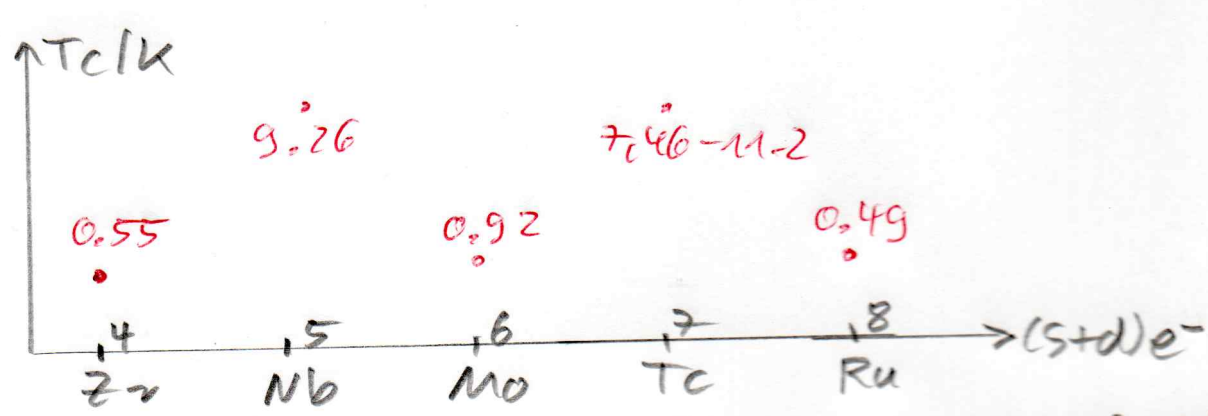 Tc/K
9.26 7.46-11.2
0.55 0.92 0.49
4 5 6 7 8 (s+d)e⁻
Zr Nb Mo Tc Ru